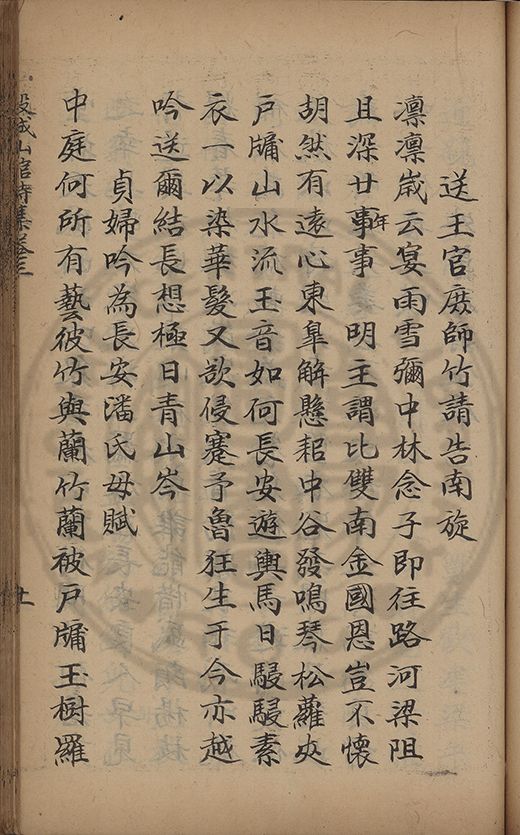 送王官庻師竹請告南旋
凛凛嵗云宴雨雪彌中林念子即徃路河梁阻
且深廿年事事 明主謂比雙南金國恩豈不懷
胡然有遠心東臯解懸耜中谷發鳴琴松蘿夾
戶牗山水流玉音如何長安遊輿馬日駸駸素
衣一以染華髮又欲侵蹇予魯狂生于今亦越
吟送爾結長想極日青山岑
貞婦吟為長安潘氏母賦
中庭何所有藝彼竹與蘭竹蘭被戶牗玉樹羅
糓城山館詩集卷三